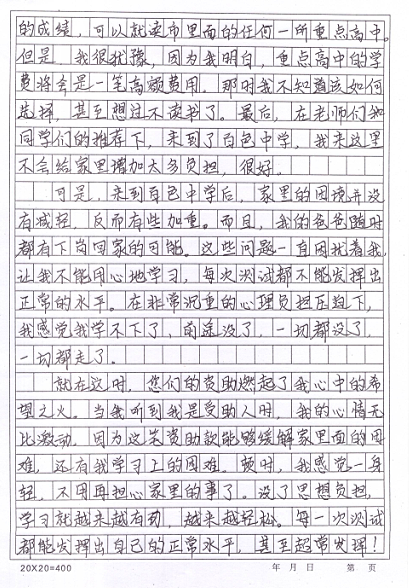 的成绩，可以就读市里面的任何一所重点高中。
但是，我很犹豫，因为我明白，重点高中的学
费将会是一笔高额费用，那时我不知道该如何
选择，甚至想过不读书了。最后，在老师们和
同学们的推荐下，来到了百色中学，我来这里
不会给家里增加太多负担，很好。
可是，来到百色中学后，家里的困境并没
有减轻，反而有些加重。而且，我的爸爸随时
都有下岗回家的可能。这些问题一直困扰着我，
让我不能用心地学习，每次测试都不能发挥出
正常的水平。在非常沉重的心理负担压迫下，
我感觉我学不下了，前途没了，一切都没了，
一切都走了。
就在这时，您们的资助燃起了我心中的希
望之火。当我听到我是受助人时，我的心情无
比激动，因为这笔资助款能够缓解家里面的困
难，还有我学习上的困难。顿时，我感觉一身
轻，不用再担心家里的事了。没了思想负担，
学习就越来越有劲，越来越轻松。每一次测试
都能发挥出自己的正常水平，甚至超常发挥！
20X20=400 年 月 日 第 页